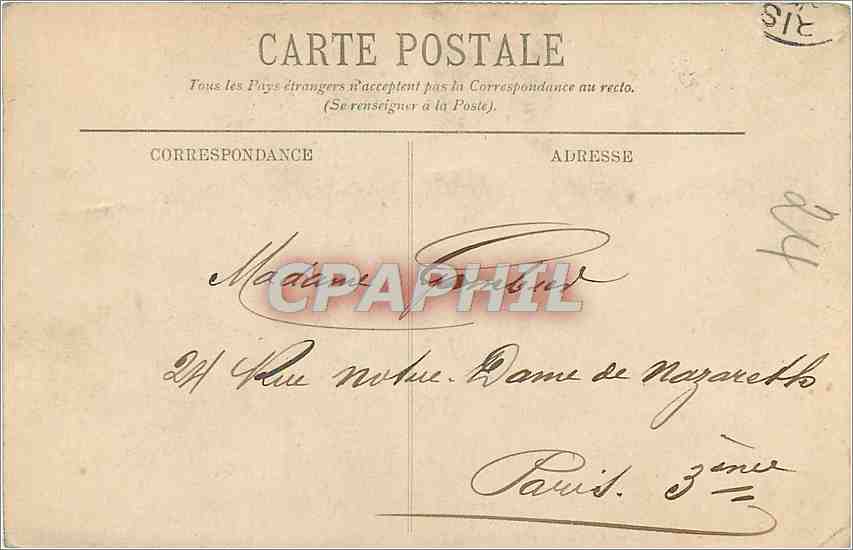 RIS
CARTE POSTALE
Tous les Pays étrangers n'acceptent pas la Correspondance au recto.
(Se renseigner à la Poste).
CORRESPONDANCE
ADRESSE
24
Madame
CPAPHIL
24 Rue Notre-Dame de Nazareth
Paris. 3ème